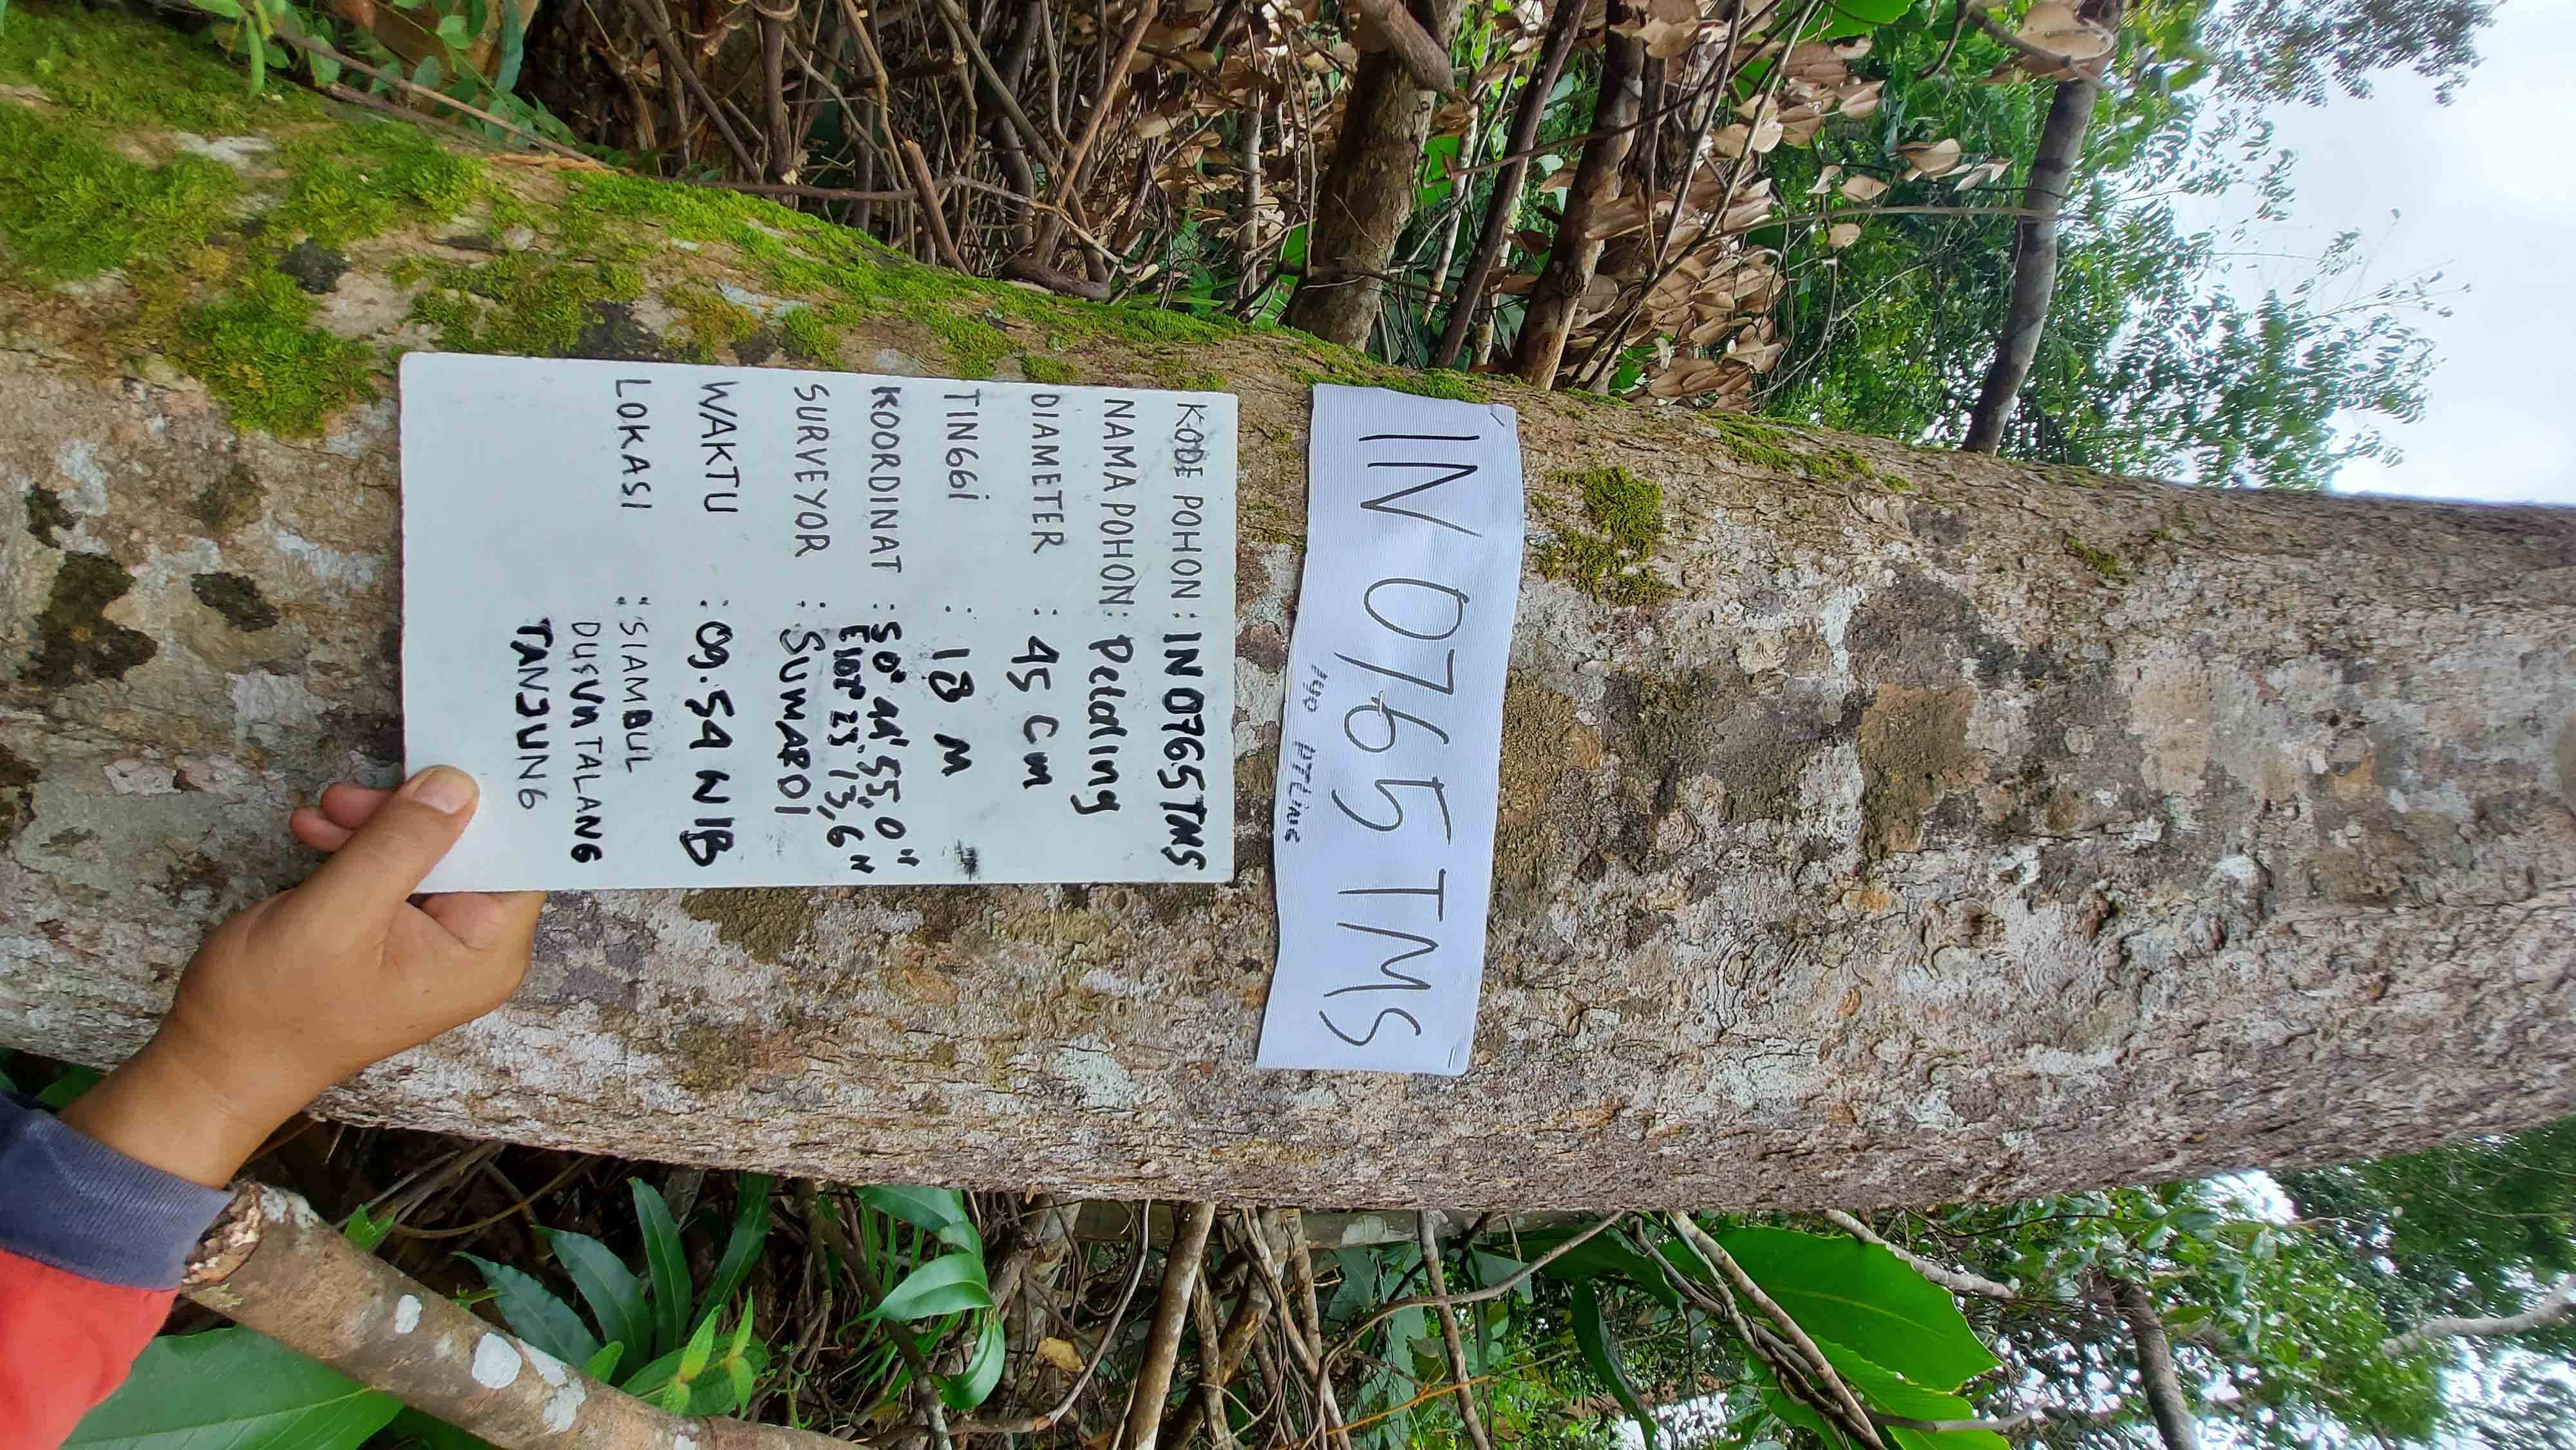 IN 0765 TMS
140 PTLING
KODE POHON : IN 0765 TMS
NAMA POHON : Petaling
DIAMETER : 45 Cm
TINGGi : 18 M
KOORDINAT : S 0° 44' 55,0"
E 102° 23' 13,6"
SURVEYOR : SUMARDI
WAKTU : 09.54 WIB
LOKASI : SIAMBUL
DUSUN TALANG
TANJUNG